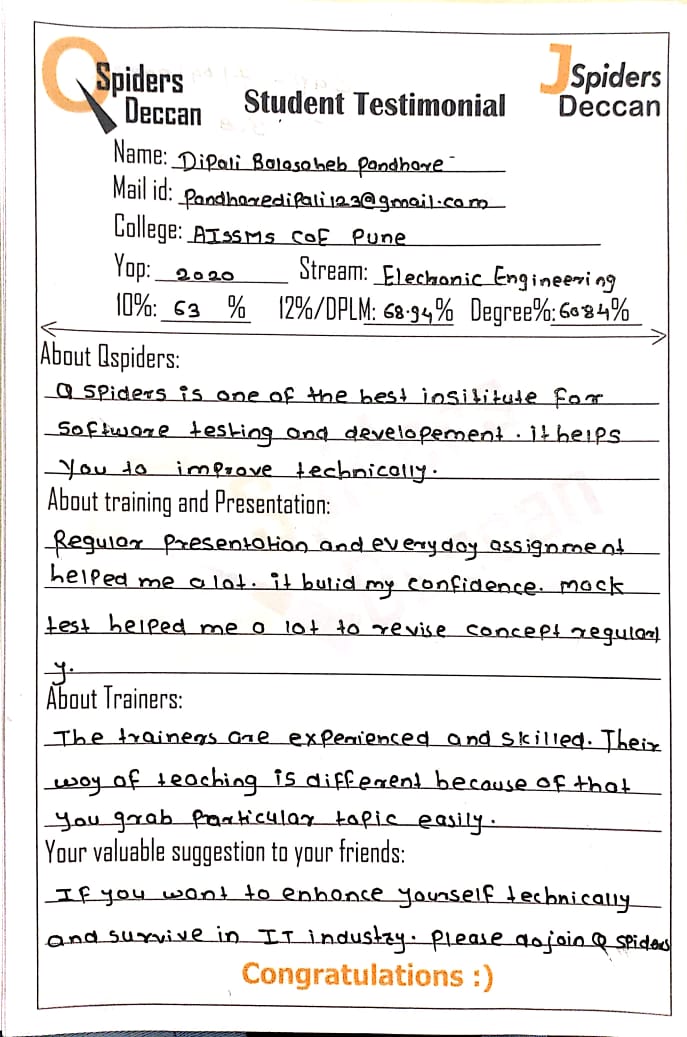 QSpiders Deccan
Student Testimonial
JSpiders Deccan
Name: Dipali Balasaheb Pandhare
Mail id: Pandharedipali123@gmail.com
College: AISSMS COE Pune
Yop: 2020 Stream: Elechonic Engineering
10%: 63 % 12%/DPLM: 68.94% Degree%: 60.84%
About Qspiders:
Q Spiders is one of the best insititute for
software testing and developement. it helps
You to improve technically.
About training and Presentation:
Regular Presentation and everyday assignment
helped me a lot. it bulid my confidence. mock
test helped me a lot to revise concept regularl
y.
About Trainers:
The trainers are experienced and skilled. Their
way of teaching is different because of that
you grab particular topic easily.
Your valuable suggestion to your friends:
If you want to enhance yourself technically
and survive in IT industry. Please do join Q Spiders
Congratulations :)